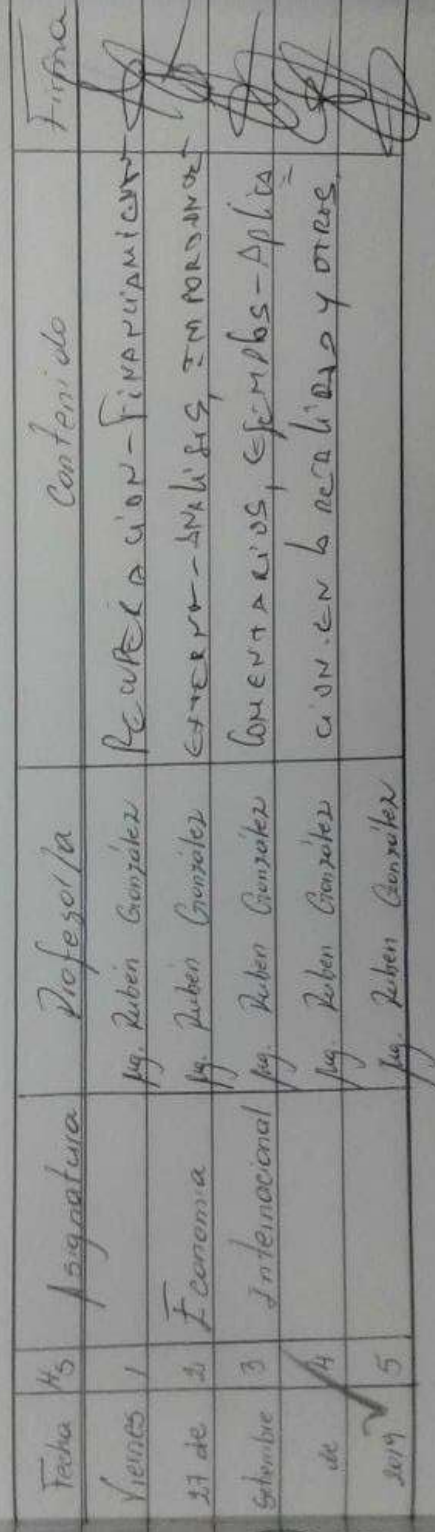 Fecha Hs Asignatura Profesor/a Contenido Firma
Viernes 1 Mg. Rubén González RECUPERACION-FINANCIAMIENTO
27 de 2 Economía Mg. Rubén González EXTERNO-ANALISIS, IMPORTANCIA
Setiembre 3 Internacional Mg. Rubén González COMENTARIOS, EJEMPLOS-Aplica
de 4 Mg. Rubén González CION.EN LA REALIDAD Y OTROS.
2019 5 Mg. Rubén González